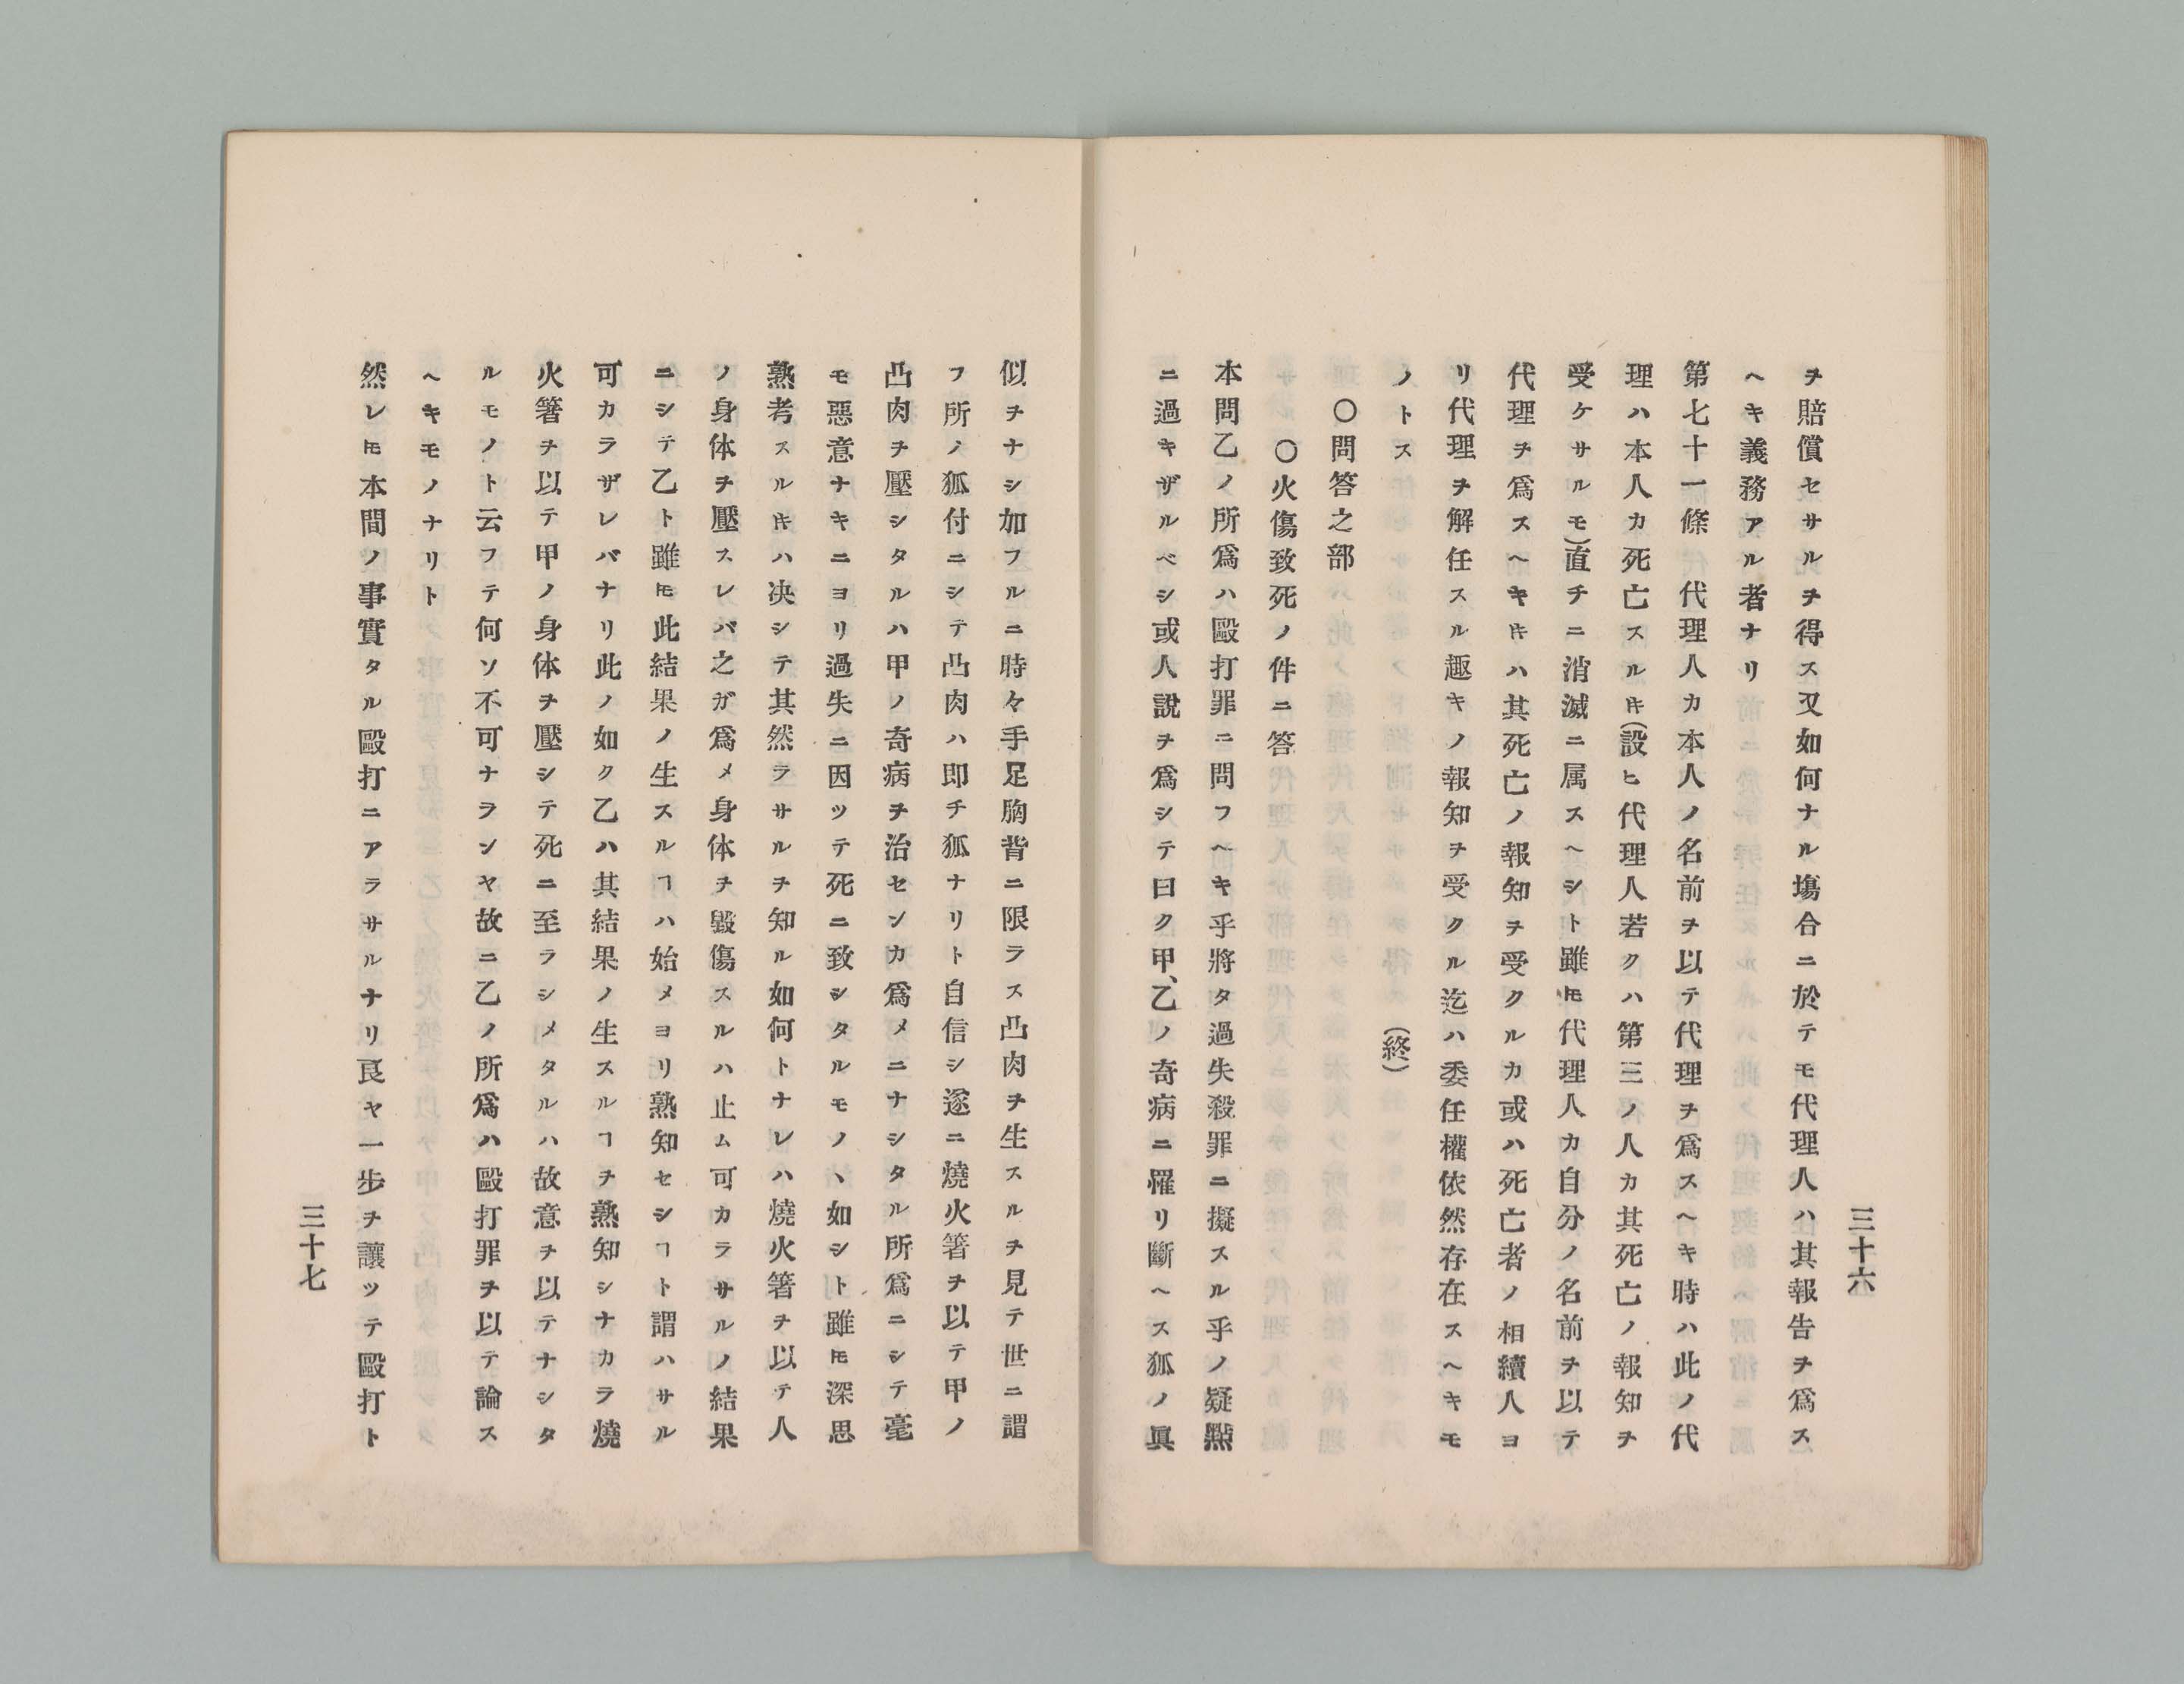 三十六
ヲ賠償セサルヲ得ス又如何ナル塲合ニ於テモ代理人ハ其報告ヲ爲ス
ヘキ義務アル者ナリ
第七十一條　代理人カ本人ノ名前ヲ以テ代理ヲ爲スヘキ時ハ此ノ代
理ハ本人カ死亡スル𪜈(設ヒ代理人若クハ第三ノ人カ其死亡ノ報知ヲ
受ケサルモ)直チニ消滅ニ属スヘシト雖𪜈代理人カ自分ノ名前ヲ以テ
代理ヲ爲スヘキ𬼀ハ其死亡ノ報知ヲ受クルカ或ハ死亡者ノ相續人ヨ
リ代理ヲ解任スル趣キノ報知ヲ受クル迄ハ委任權依然存在スヘキモ
ノトス　(終)
〇問答之部
〇火傷致死ノ件ニ答
本問乙ノ所爲ハ毆打罪ニ問フヘキ乎將タ過失殺罪ニ擬スル乎ノ疑點
ニ過キザルベシ或人說ヲ爲シテ曰ク甲、乙ノ奇病ニ罹リ斷ヘス狐ノ眞
似ヲナシ加フルニ時々手足胸背ニ限ラス凸肉ヲ生スルヲ見テ世ニ謂
フ所ノ狐付ニシテ凸肉ハ即チ狐ナリト自信シ遂ニ燒火箸ヲ以テ甲ノ
凸肉ヲ壓シタルハ甲ノ奇病ヲ治センカ爲メニナシタル所爲ニシテ毫
モ惡意ナキニヨリ過失ニ因ツテ死ニ致シタルモノヽ如シト雖𪜈深思
熟考スル𬼀ハ决シテ其然ラサルヲ知ル如何トナレハ燒火箸ヲ以テ人
ノ身体ヲ壓スレバ之ガ爲メ身体ヲ毀傷スルハ止ム可カラサルノ結果
ニシテ乙ト雖𪜈此結果ノ生スルヿハ始メヨリ熟知セシヿト謂ハサル
可カラザレバナリ此ノ如ク乙ハ其結果ノ生スルヿヲ熟知シナカラ燒
火箸ヲ以テ甲ノ身体ヲ壓シテ死ニ至ラシメタルハ故意ヲ以テナシタ
ルモノト云フテ何ソ不可ナランヤ故ニ乙ノ所爲ハ毆打罪ヲ以テ論ス
ヘキモノナリト
然レ𪜈本間ノ事實タル毆打ニアラサルナリ良ヤ一步ヲ讓ツテ毆打ト
三十七